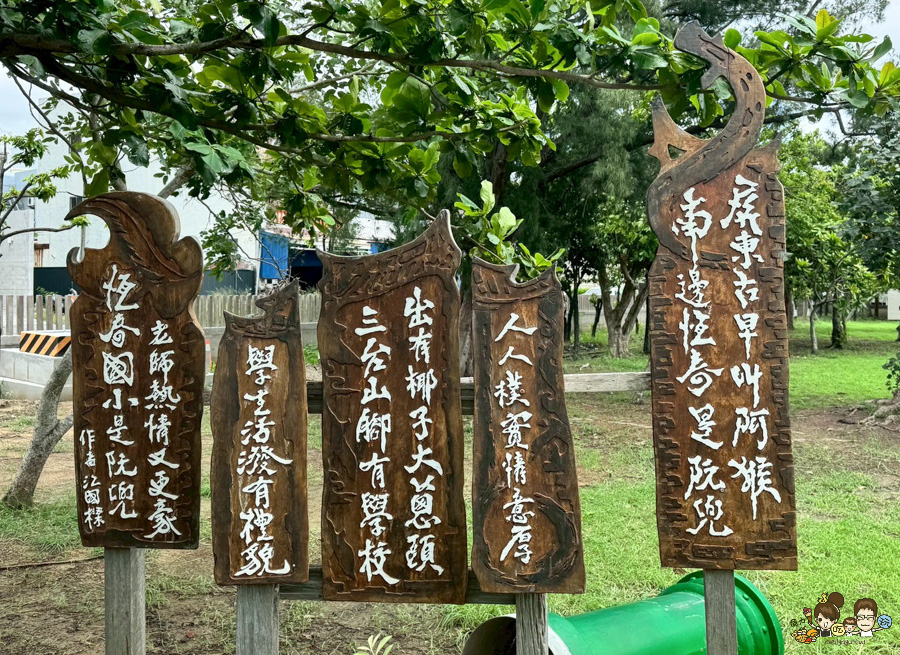 屏東古早叫阿猴
南邊恆奇是阮兜
人人樸實情意厚
出有椰子大蔥頭
三台山腳有學校
學生活潑有禮貌
老師熱情又更豪
恆春國小是阮兜
作者 江國樑